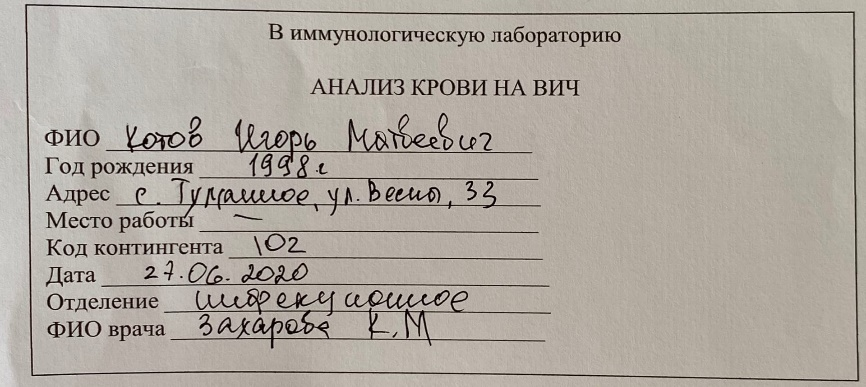 В иммунологическую лабораторию
АНАЛИЗ КРОВИ НА ВИЧ
ФИО Котов Игорь Матвеевич
Год рождения 1998 г
Адрес с. Туманное, ул. Весны, 33
Место работы —
Код контингента 102
Дата 27.06.2020
Отделение инфекционное
ФИО врача Захарова К.М